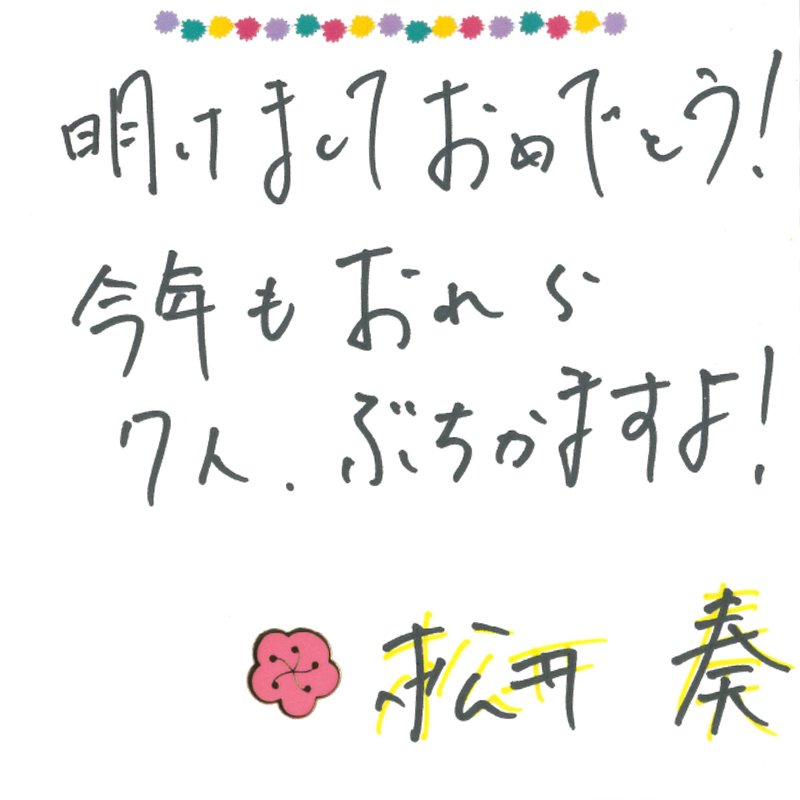 明けましておめでとう!
今年もおれら
7人、ぶちかますよ!
松井 奏